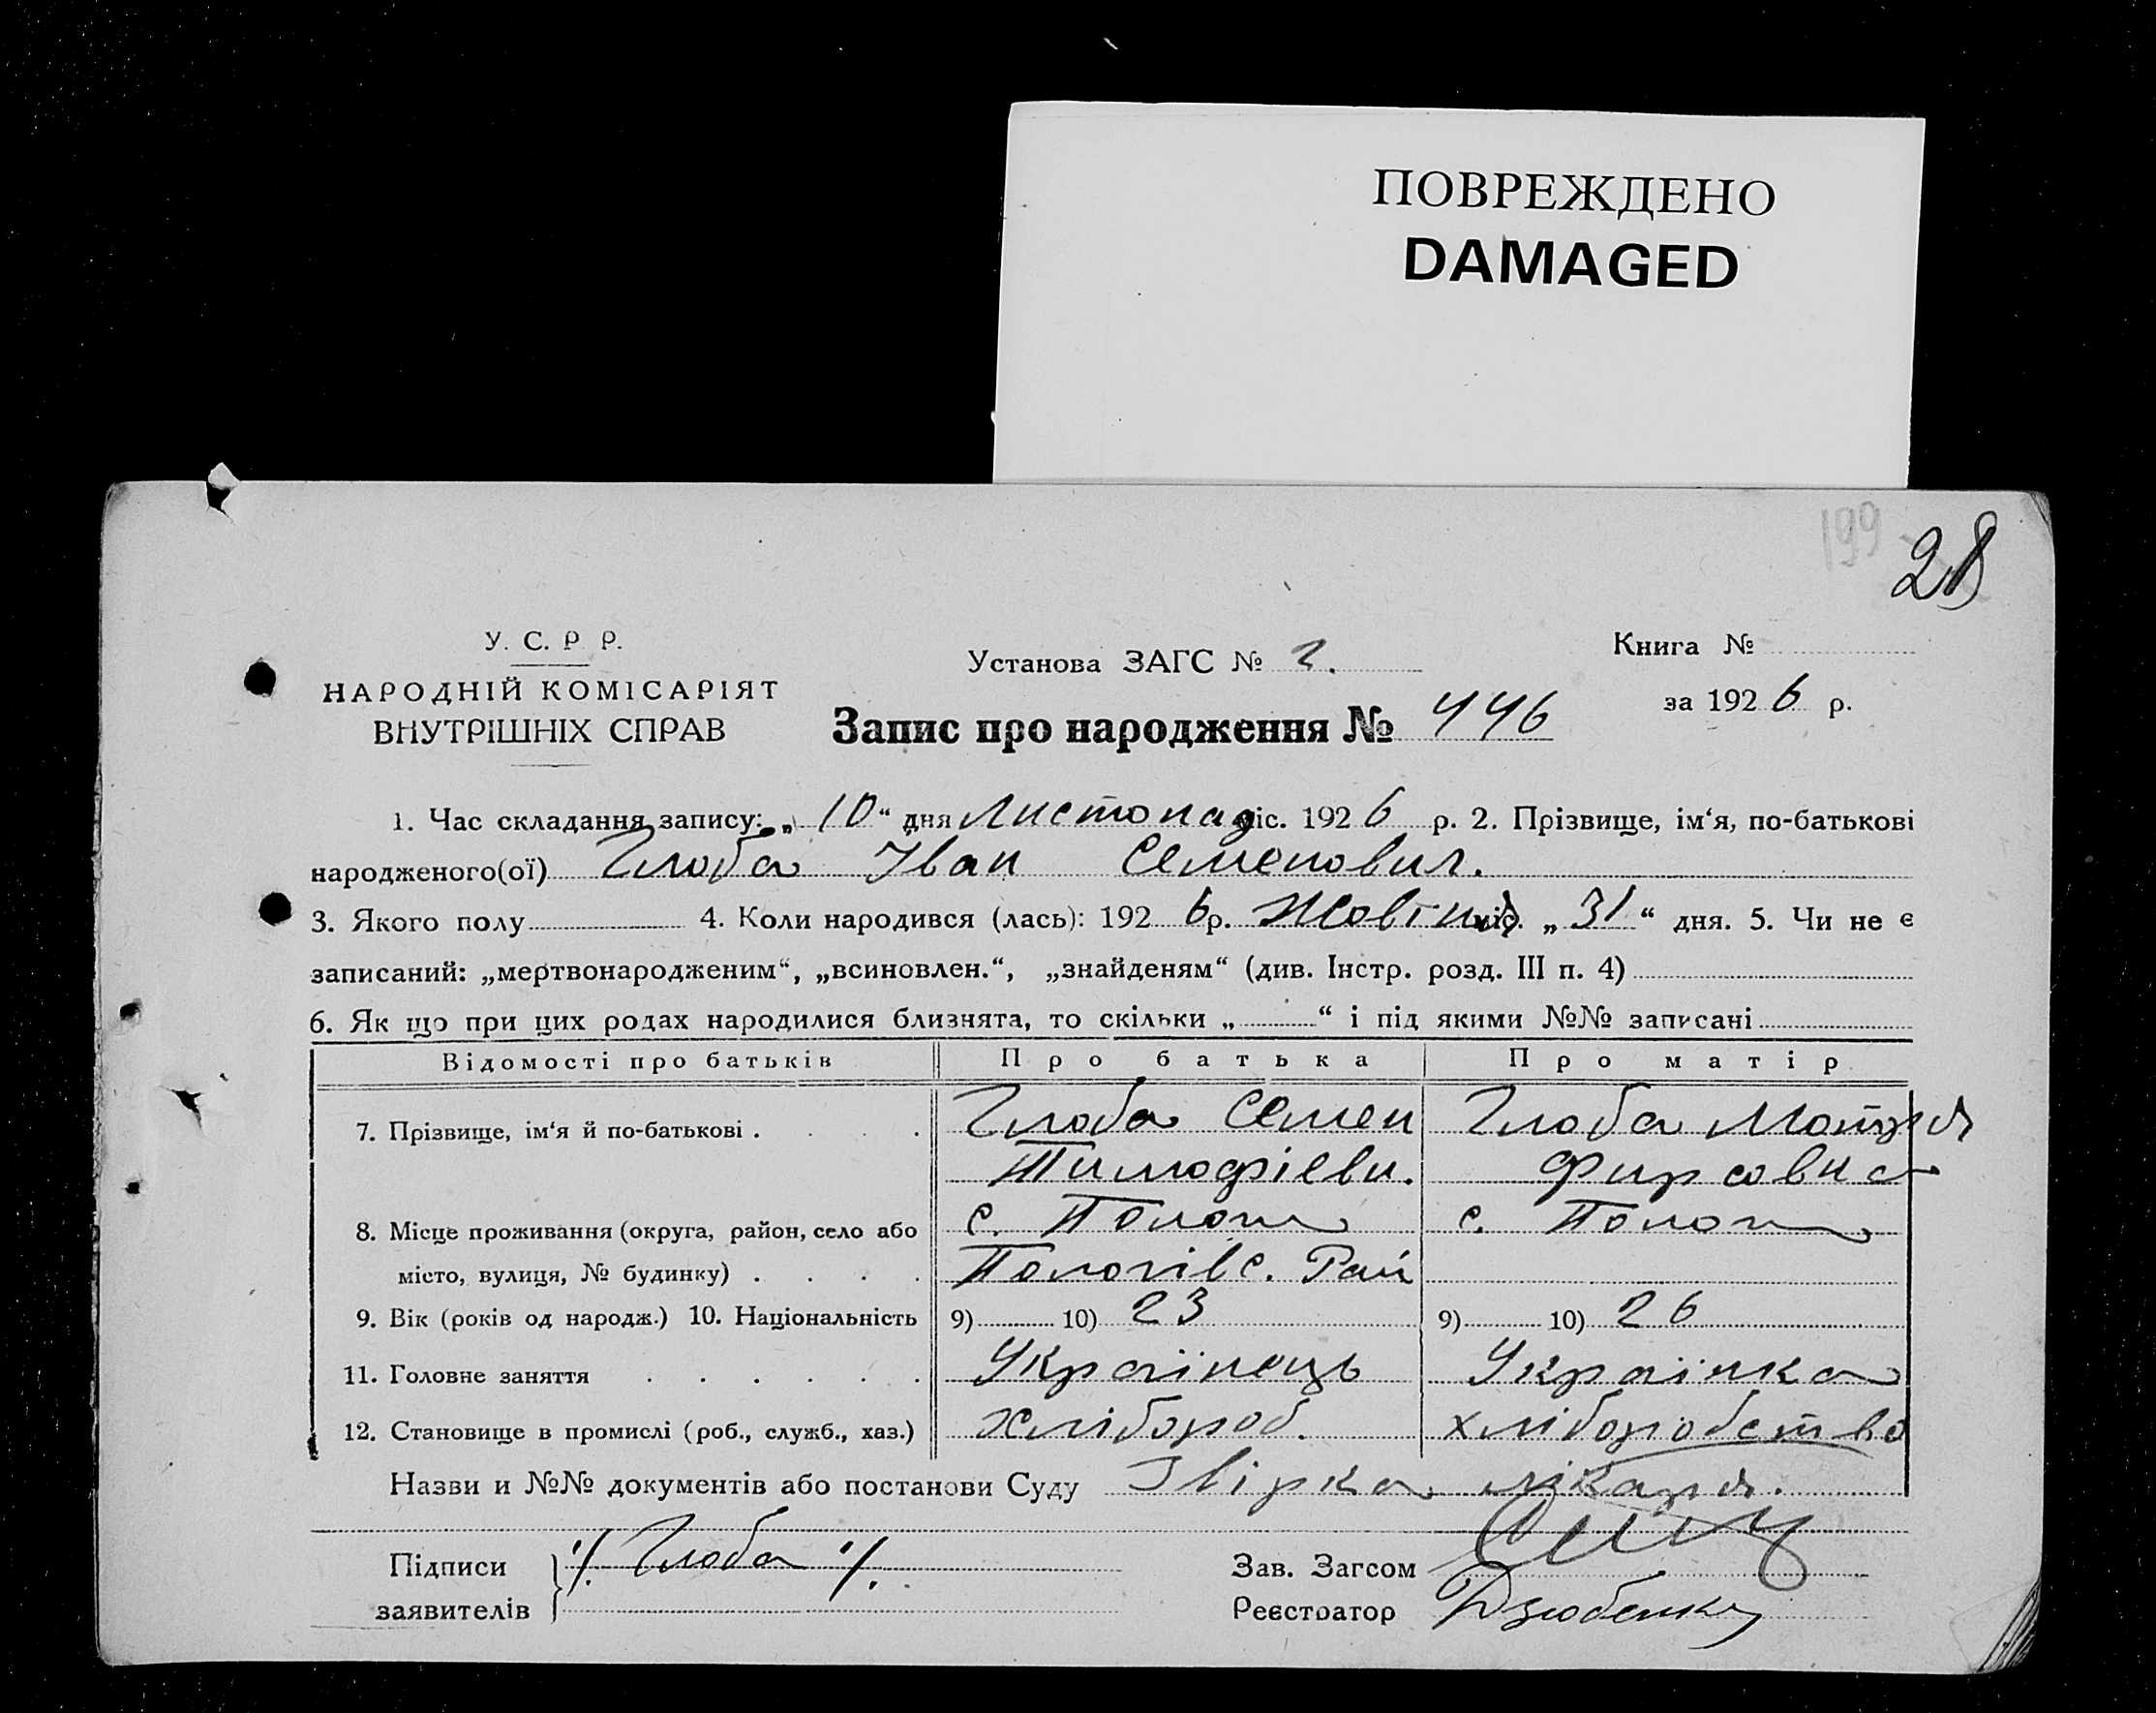 ПОВРЕЖДЕНО
DAMAGED
199
28
У. С. Р Р.
НАРОДНІЙ КОМІСАРІЯТ
ВНУТРІШНІХ СПРАВ
Установа ЗАГС № 2.
Книга №
за 1926 р.
Запис про народження № 446
1. Час складання запису: „10“ дня Листопад міс. 1926 р. 2. Прізвище, ім‘я, по-батькові
народженого(ої) Глоба Іван Семенович.
3. Якого полу 4. Коли народився (лась): 1926 р. Жовтня міс. „31“ дня. 5. Чи не є
записаний: „мертвонародженим“, „всиновлен.“, „знайденям“ (див. Інстр. розд. III п. 4)
6. Як що при цих родах народилися близнята, то скільки „ “ і під якими №№ записані
Відомості про батьків Про батька Про матір
7. Прізвище, ім‘я й по-батькові . Глоба Семен Глоба Мотря
Тимофієви. Фирсовна
8. Місце проживання (округа, район, село або с. Пологи с. Пологи
місто, вулиця, № будинку) . Пологівс. Рай
9. Вік (років од народж.) 10. Національність 9) 10) 23 9) 10) 26
11. Головне заняття Українець Українка
12. Становище в промислі (роб., служб., хаз.) хлібороб. хліборобство
Назви и №№ документів або постанови Суду Звірка лікаря.
Підписи /. Глоба /.
Зав. Загсом
заявителів
Реєстратор Дзюбенко